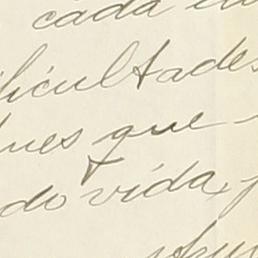 cada
ficultades
ues que
do vida,